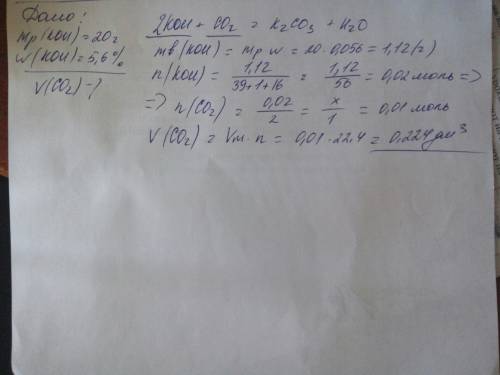 Дано:
mр(KOH)=20г
w(KOH)=5,6%
V(CO₂)-?
2KOH + CO₂ = K₂CO₃ + H₂O
mв(KOH) = mр w = 20·0,056 = 1,12(г)
n(KOH) = 1,12/39+1+16 = 1,12/56 = 0,02 моль =>
=> n(CO₂) = 0,02/2 = x/1 = 0,01 моль
V(CO₂) = Vм·n = 0,01·22,4 = 0,224 дм³